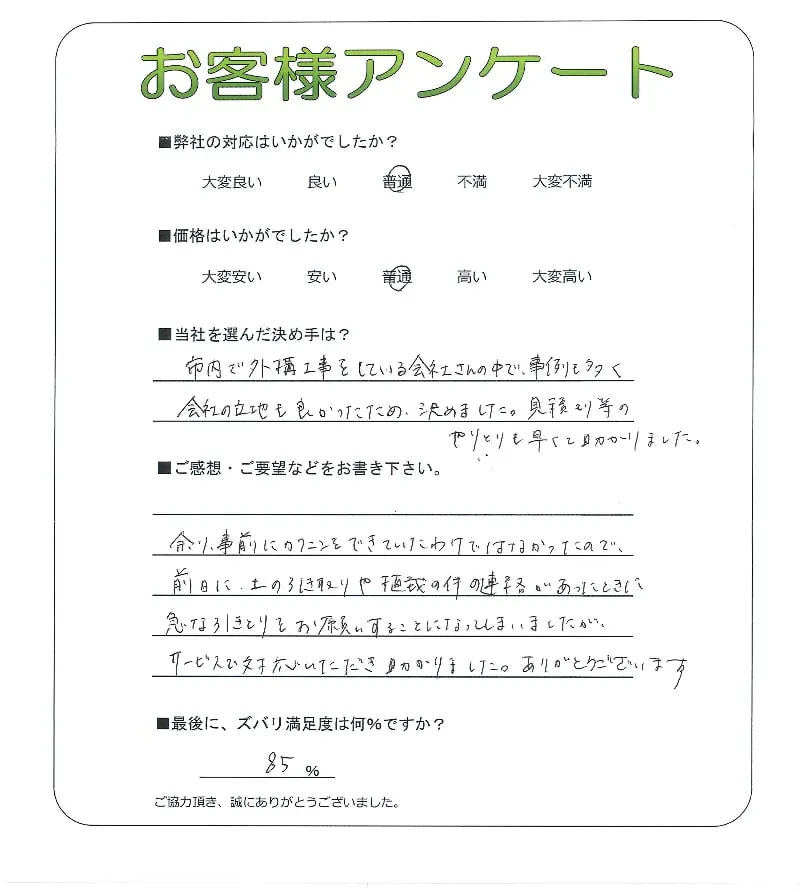 お客様アンケート
■弊社の対応はいかがでしたか？
大変良い 良い 普通 不満 大変不満
■価格はいかがでしたか？
大変安い 安い 普通 高い 大変高い
■当社を選んだ決め手は？
市内で外構工事をしている会社さんの中で、事例も多く
会社の立地も良かったため、決めました。見積り等の
やりとりも早くて助かりました。
■ご感想・ご要望などをお書き下さい。
余り、事前にカクニンをできていたわけではなかったので、
前日に、土の引き取りや植栽の件の連絡があったときに
急な引きとりをお願いすることになってしまいましたが、
サービスで対応いただき助かりました。ありがとうございます
■最後に、ズバリ満足度は何%ですか？
85 %
ご協力頂き、誠にありがとうございました。